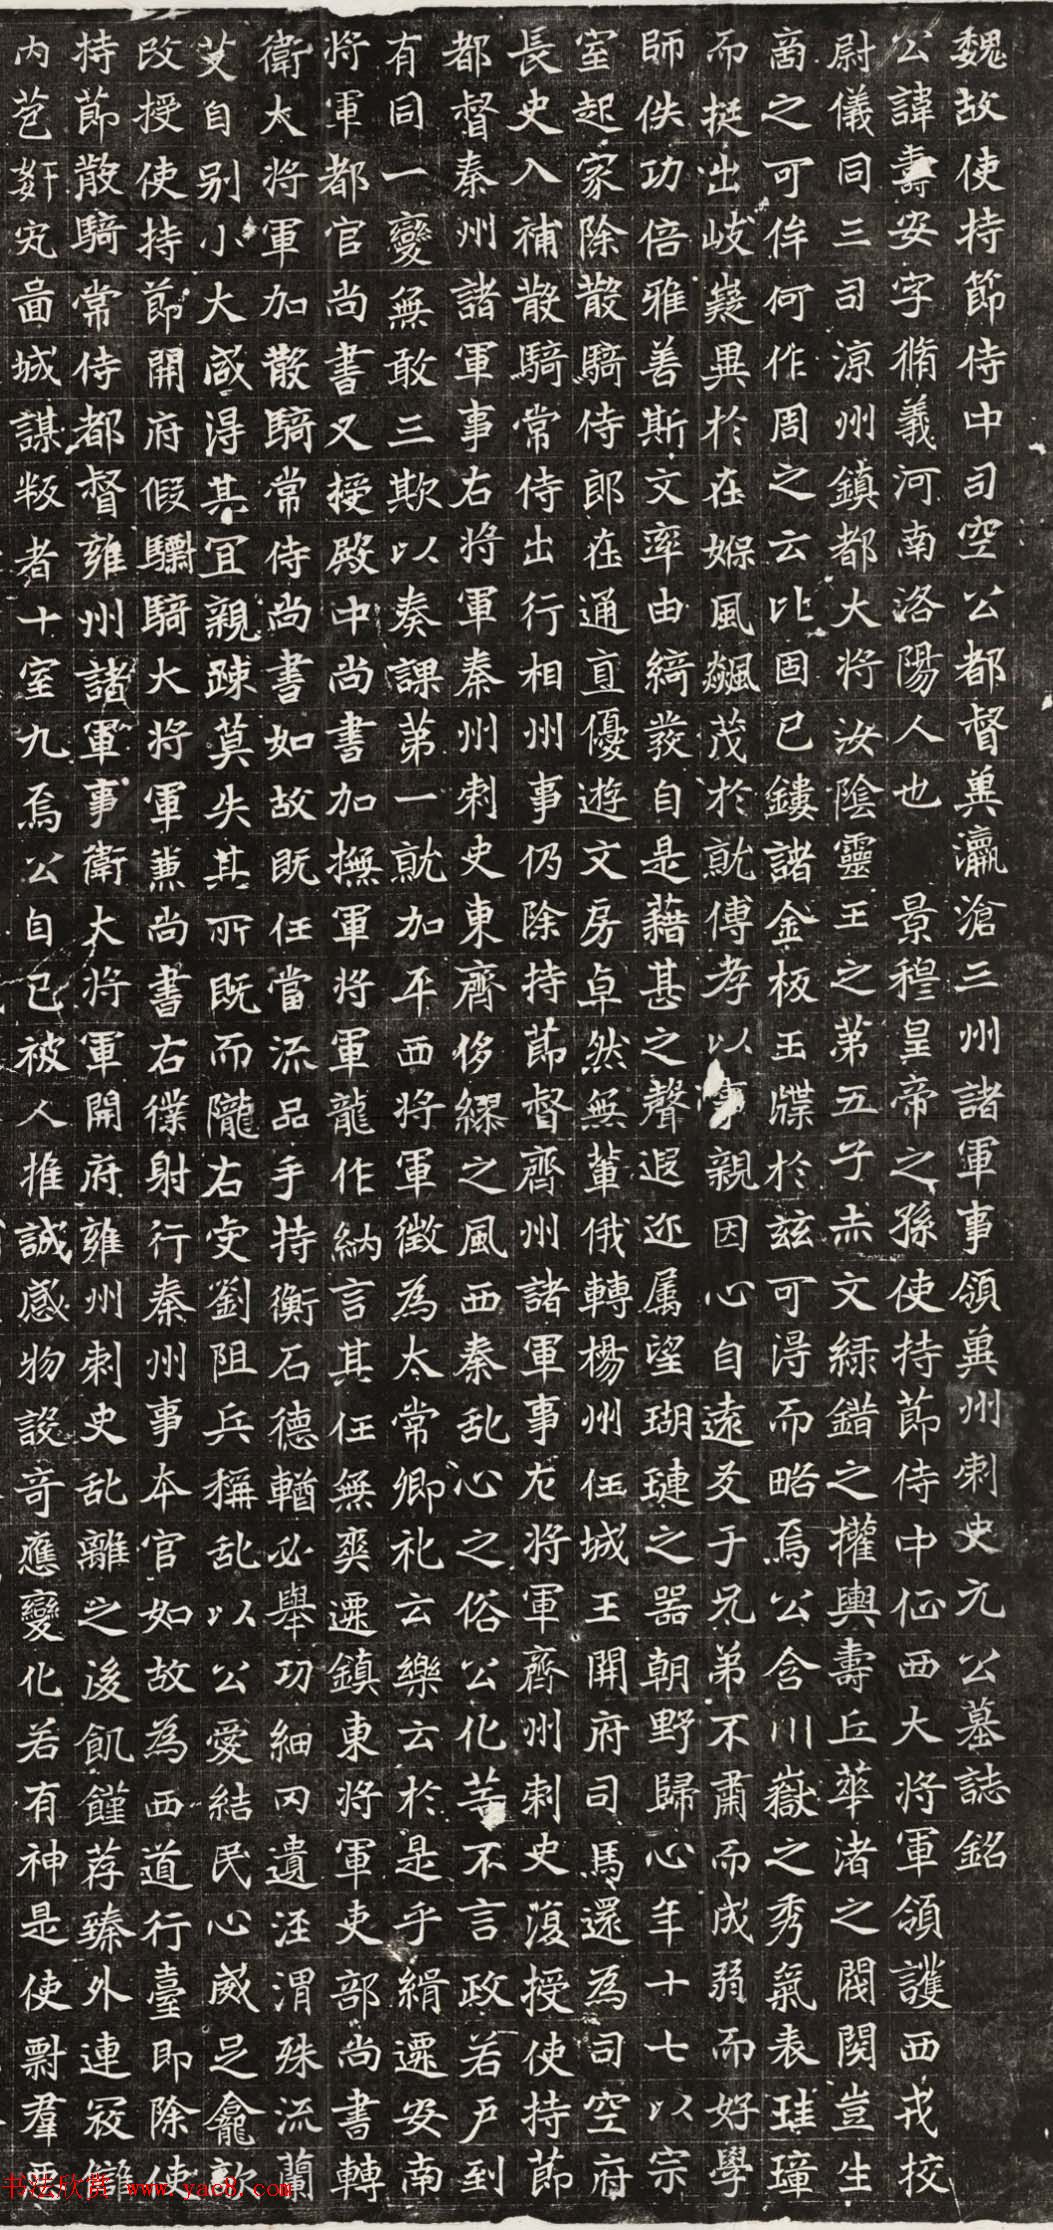 魏故使持節侍中司空公都督冀瀛滄三州諸軍事領冀州刺史元公墓誌銘
公諱壽安字脩義河南洛陽人也 景穆皇帝之孫使持節侍中征西大將軍領護西戎校
尉儀同三司涼州鎮都大將汝陰靈王之第五子赤文綠錯之權輿壽丘華渚之閥閱豈生
商之可侔何作周之云比固已鏤諸金板玉牒於茲可得而略焉公含川嶽之秀氣表珪璋
而挺出岐嶷異於在緥風飆茂於就傅孝以事親因心自遠友于兄弟不肅而成弱而好學
師佚功倍雅善斯文率由綺發自是藉甚之聲遐迩属望瑚璉之器朝野歸心年十七以宗
室起家除散騎侍郎在通直優遊文房卓然無輩俄轉楊州任城王開府司馬還為司空府
長史入補散騎常侍出行相州事仍除持節督齊州諸軍事左將軍齊州刺史復授使持節
都督秦州諸軍事右將軍秦州刺史東齊侈繆之風西秦乱心之俗公化等不言政若戶到
有同一變無敢三欺以奏課第一就加平西將軍徵為太常卿礼云樂云於是乎緝遷安南
將軍都官尚書又授殿中尚書加撫軍將軍龍作納言其任無爽遷鎮東將軍吏部尚書轉
衛大將軍加散騎常侍尚書如故既任當流品手持衡石德輶必舉功細罔遺涇渭殊流蘭
艾自別小大咸得其宜親踈莫失其所既而隴右妖劉阻兵稱乱以公愛結民心威足龕敵
改授使持節開府假驃騎大將軍兼尚書右僕射行秦州事本官如故為西道行臺即除使
持節散騎常侍都督雍州諸軍事衛大將軍開府雍州刺史乱離之後飢饉荐臻外連寇讎
內苞姧宄啚城謀叛者十室九焉公自己被人推誠感物設奇應變化若有神是使剽羣
书法欣赏 www.yac8.com